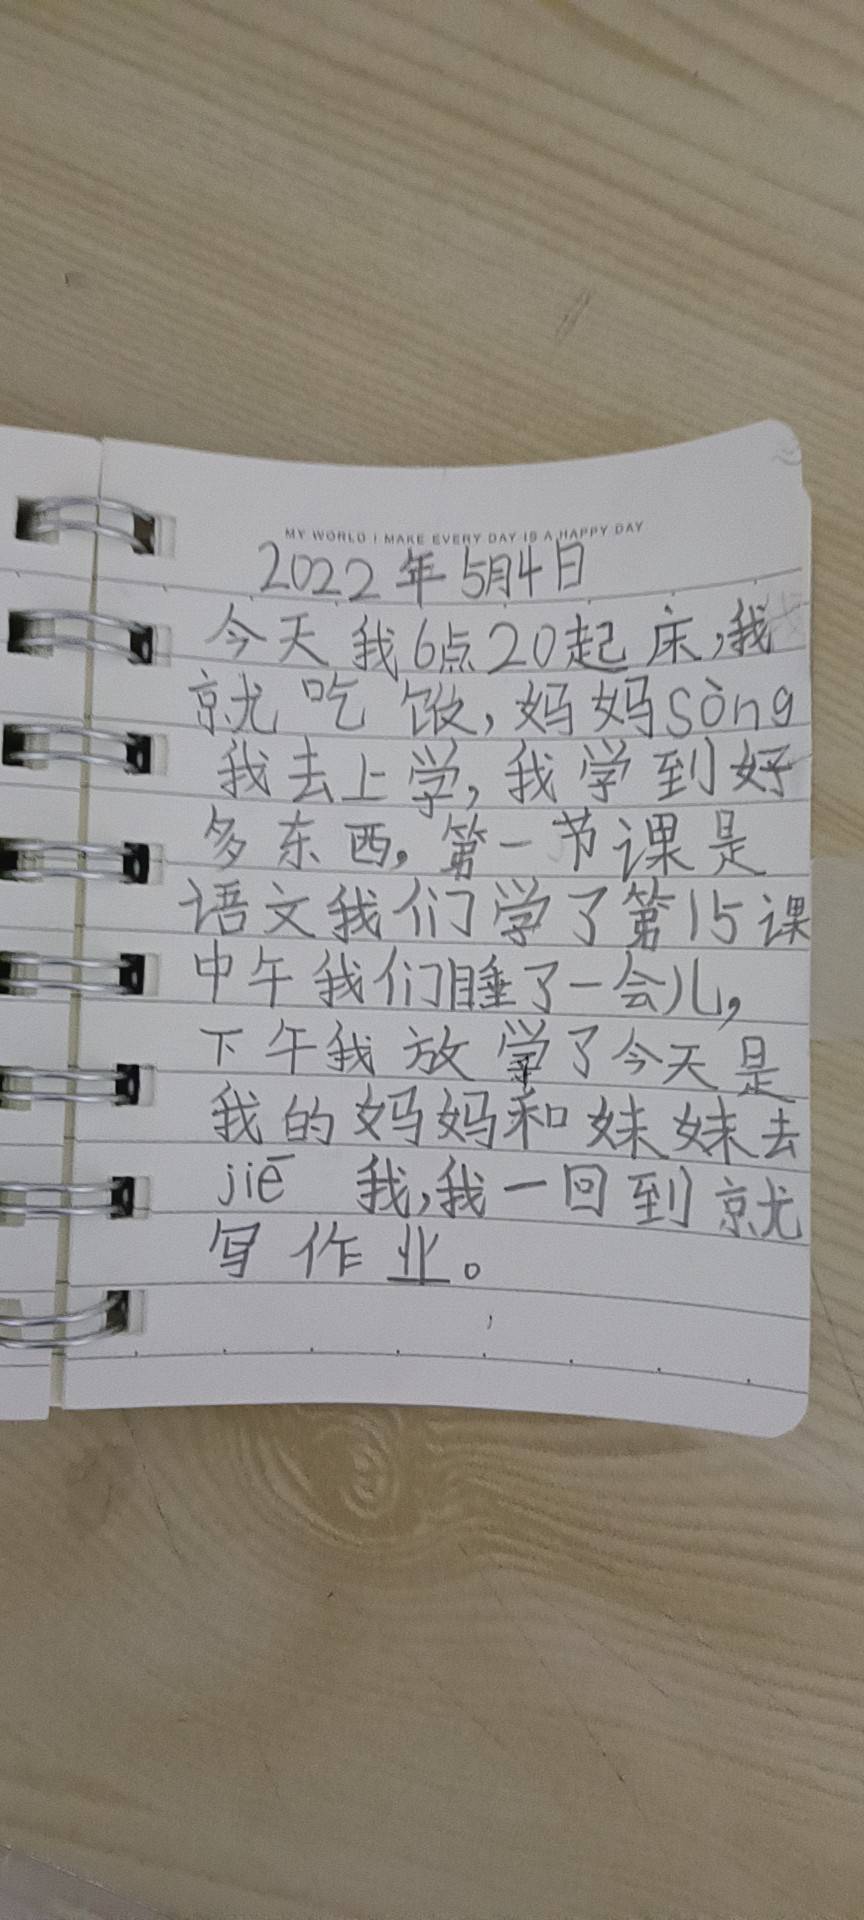 MY WORLD I MAKE EVERY DAY IS A HAPPY DAY
2022年5月4日
今天我6点20起床,我
就吃饭,妈妈sòng
我去上学,我学到好
多东西。第一节课是
语文我们学了第15课
中午我们睡了一会儿,
下午我放学了今天是
我的妈妈和妹妹去
jiē 我,我一回到就
写作业。